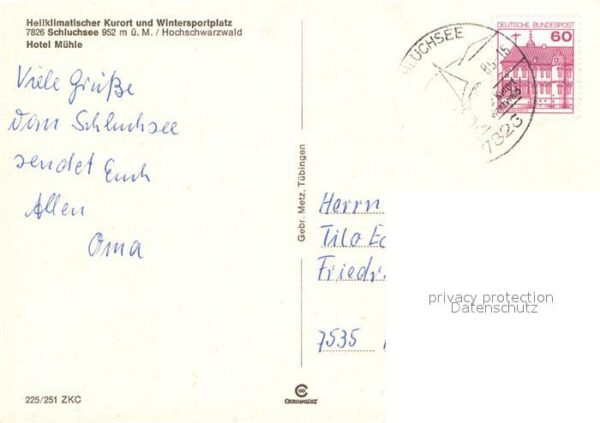 Heilklimatischer Kurort und Wintersportplatz
7826 Schluchsee 952 m ü. M. / Hochschwarzwald
Hotel Mühle
Viele Grüße
vom Schluchsee
sendet Euch
Allen
Oma
225/251 ZKC
Gebr. Metz, Tübingen
CHROMOLUX
DEUTSCHE BUNDESPOST
60
HLUCHSEE
7826
Herrn
Tilo
Friedr.
7535
privacy protection
Datenschutz